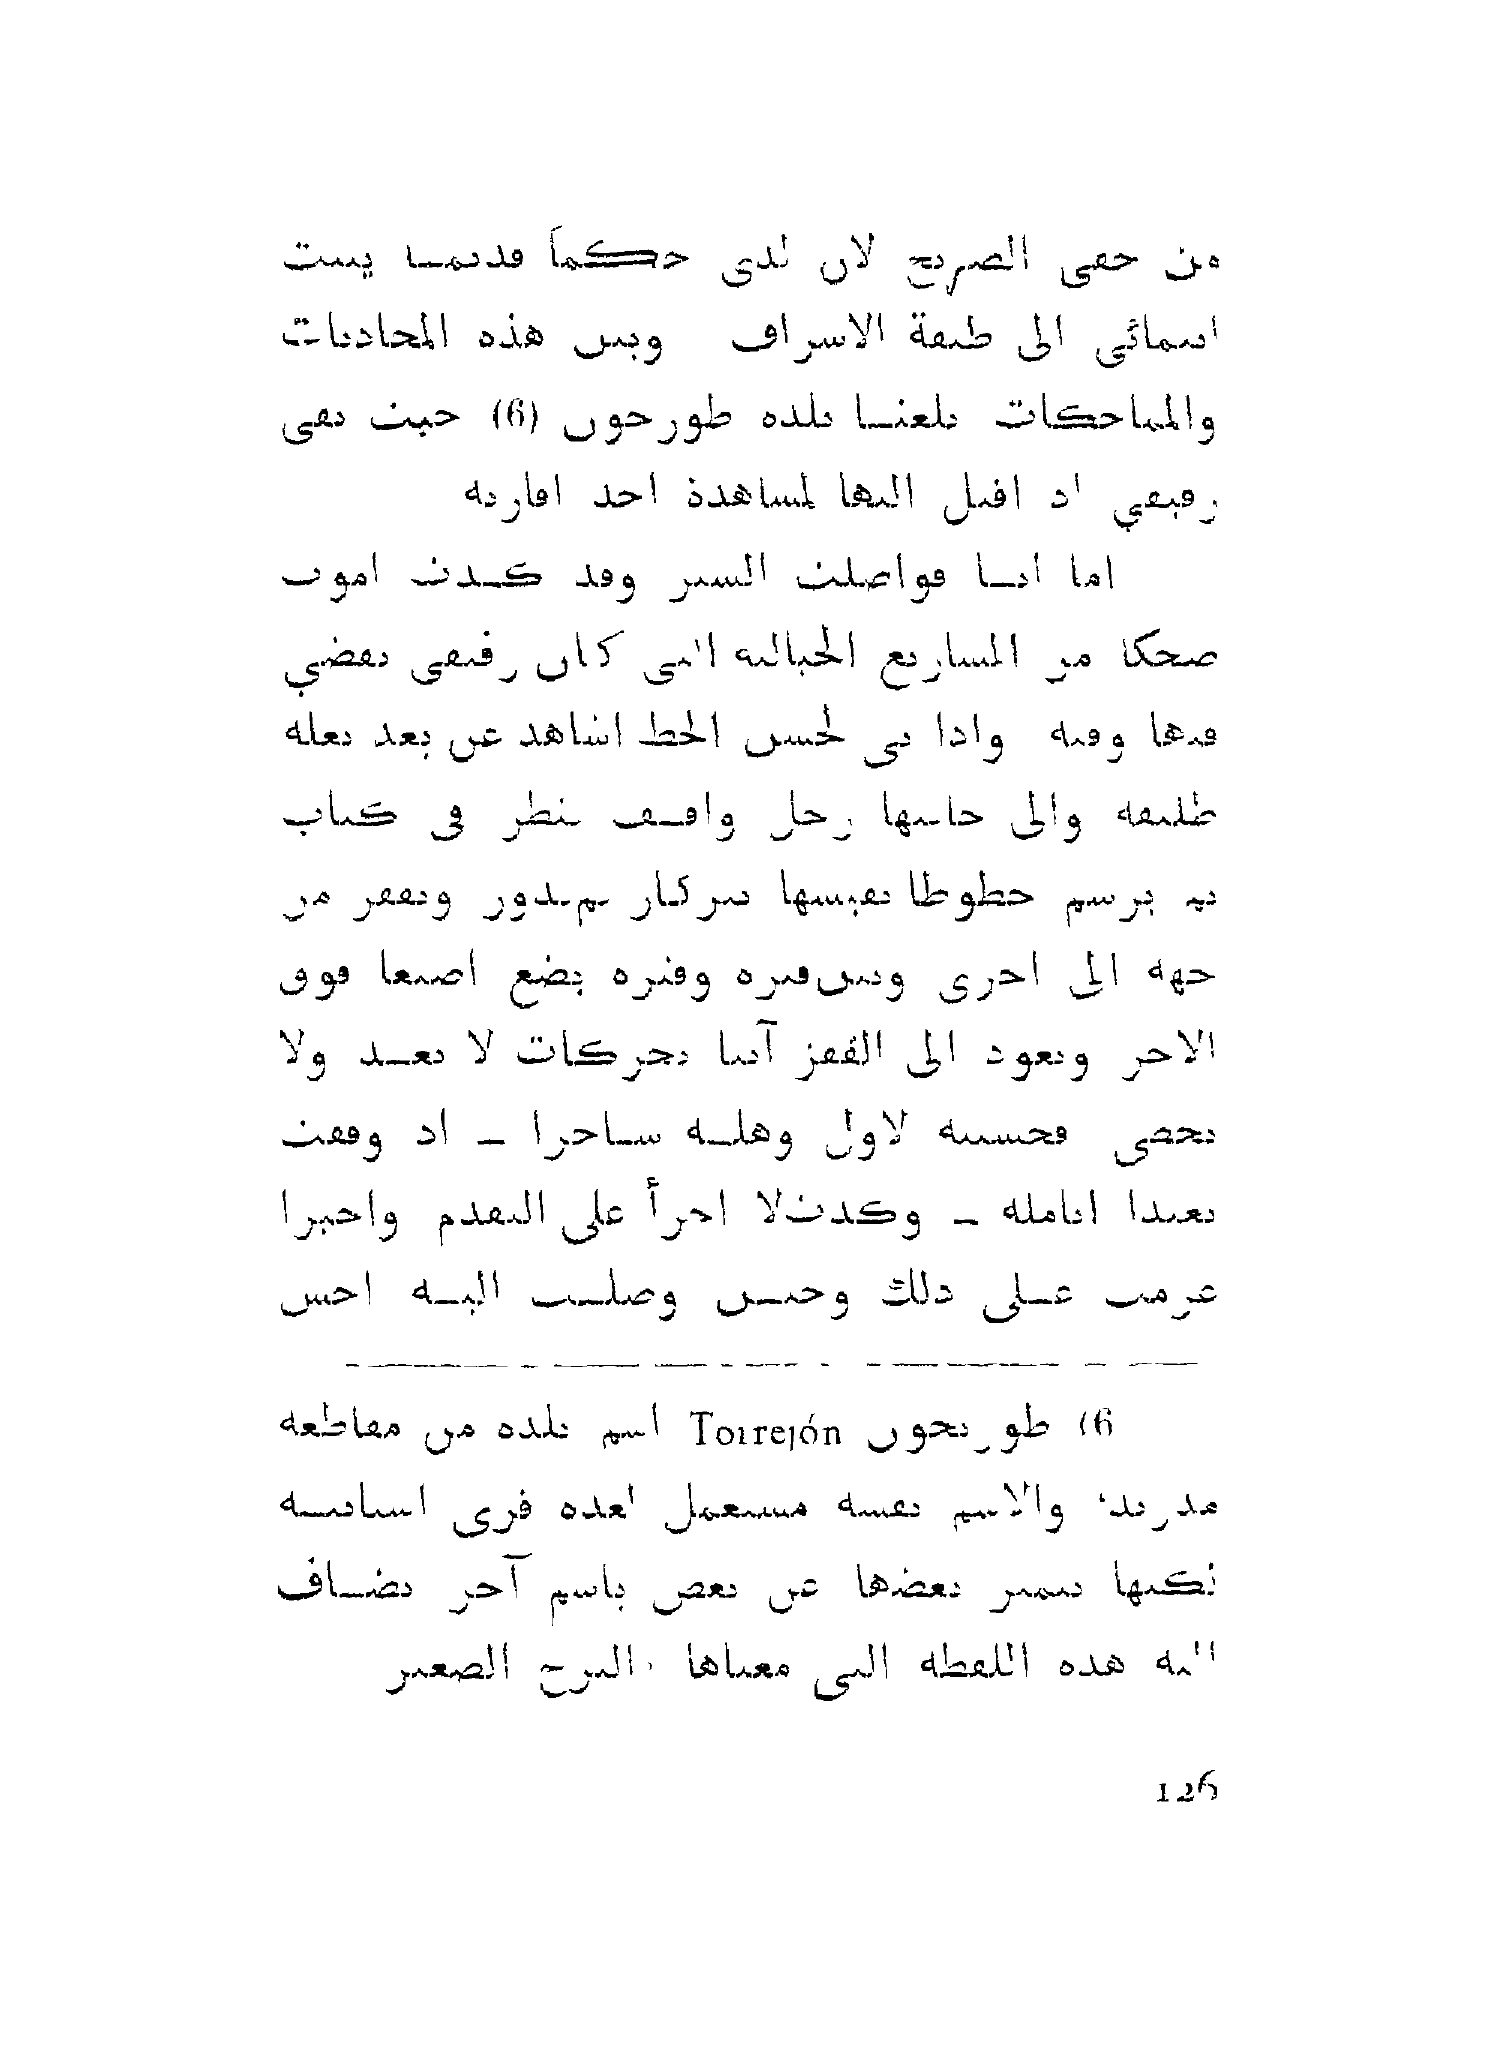 من حقي الصريح لان لدي حكماً قديمـا يثبت
انتمائي الى طبقة الاشراف وبين هذه المحادثات
والمماحكات بلغنـا بلدة طورخون (6) حيث بقي
رفيقي اذ اقبل اليها لمشاهدة احد اقاربه
اما انـا فواصلت السير وقد كـدت اموت
ضحكا من المشاريع الخيالية التي كان رفيقي يقضي
فيها وقته واذا بي لحسن الحظ اشاهد عن بعد بغلة
طليقة والى جانبها رجل واقـف ينظر في كتاب
ثم يرسم خطوطا يقيسها ببركار ثم يدور ويقفز من
جهة الى اخرى وبين فترة وفترة يضع اصبعا فوق
الآخر ويعود الى القفز آتيا بحركات لا تعـد ولا
تحصى فحسبته لاول وهلـة سـاحرا - اذ وقفت
بعيدا اتامله - وكدت لا اجرأ على التقدم واخيرا
عزمت عـلى ذلك وحيـن وصلـت اليـه احس
6) طوريخون Torrejón اسم بلدة من مقاطعة
مدريد، والاسم نفسه مستعمل لعدة قرى اسبانيـة
لكنها تتميز بعضها عن بعض باسم آخر يضـاف
اليه هذه اللفظة التي معناها البرج الصغير
126